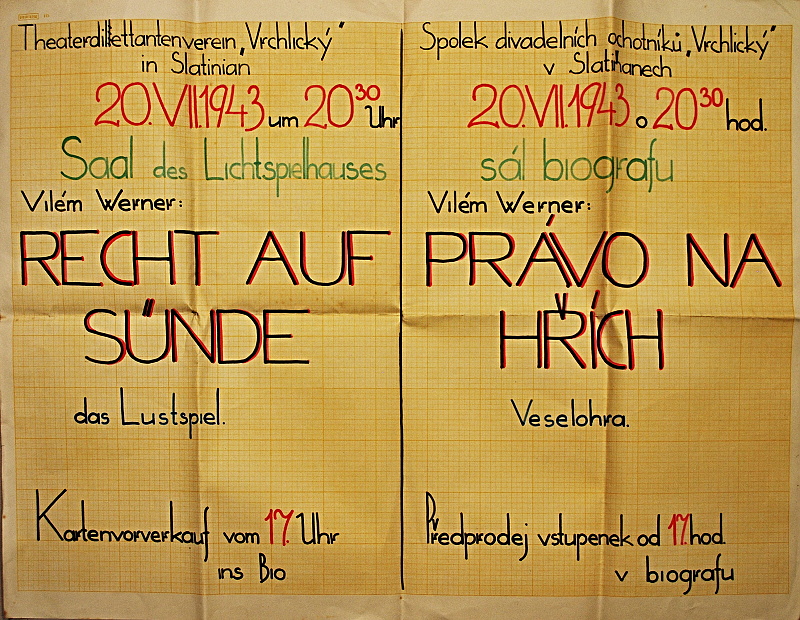 Theaterdilettantenverein „Vrchlický"
in Slatinian
20.VII.1943 um 20³⁰ Uhr
Saal des Lichtspielhauses
Vilém Werner:
RECHT AUF
SÜNDE
das Lustspiel.
Kartenvorverkauf vom 17. Uhr
ins Bio
Spolek divadelních ochotníků „Vrchlický"
v Slatiňanech
20.VII.1943 o 20³⁰ hod.
sál biografu
Vilém Werner:
PRÁVO NA
HŘÍCH
Veselohra.
Předprodej vstupenek od 17. hod.
v biografu